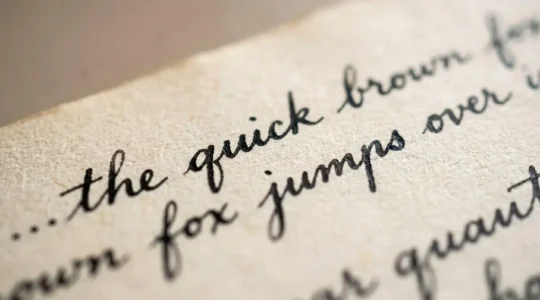 ...the quick brown fox
own fox jumps over
ar quant